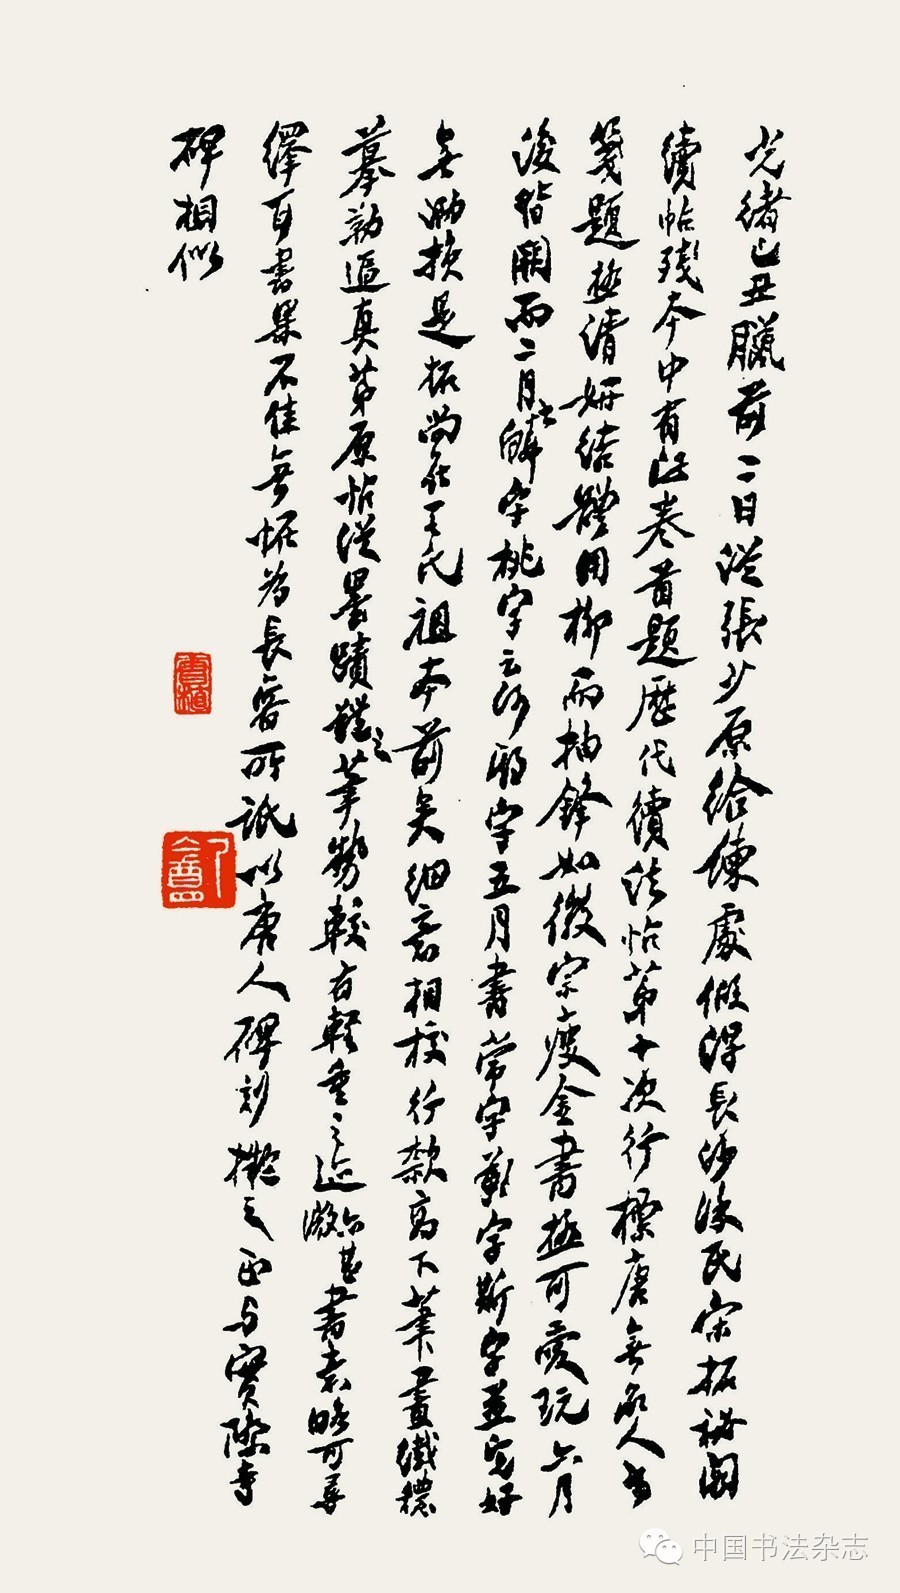 光緒己丑臘前二日從張少原給諫處假得長沙徐氏宋拓祕閣
續帖殘本中有此卷首題歷代續法帖第十次行標唐無名人書
箋題極清妍結體用柳而抽鋒如徽宗瘦金書極可愛玩六月
後皆闕而二月七解字桃字云何耶字五月書常字歎字斯字並完好
無泐損是拓尚在王氏祖本前矣細意相校行款高下筆畫纖穠
摹勒逼真第原帖從墨蹟鉤之筆勢較有輕重之迹微不甚書素略可尋
繹耳書果不佳無怪為長睿所詆以唐人碑刻擬之正與實際寺
碑相似
中国书法杂志